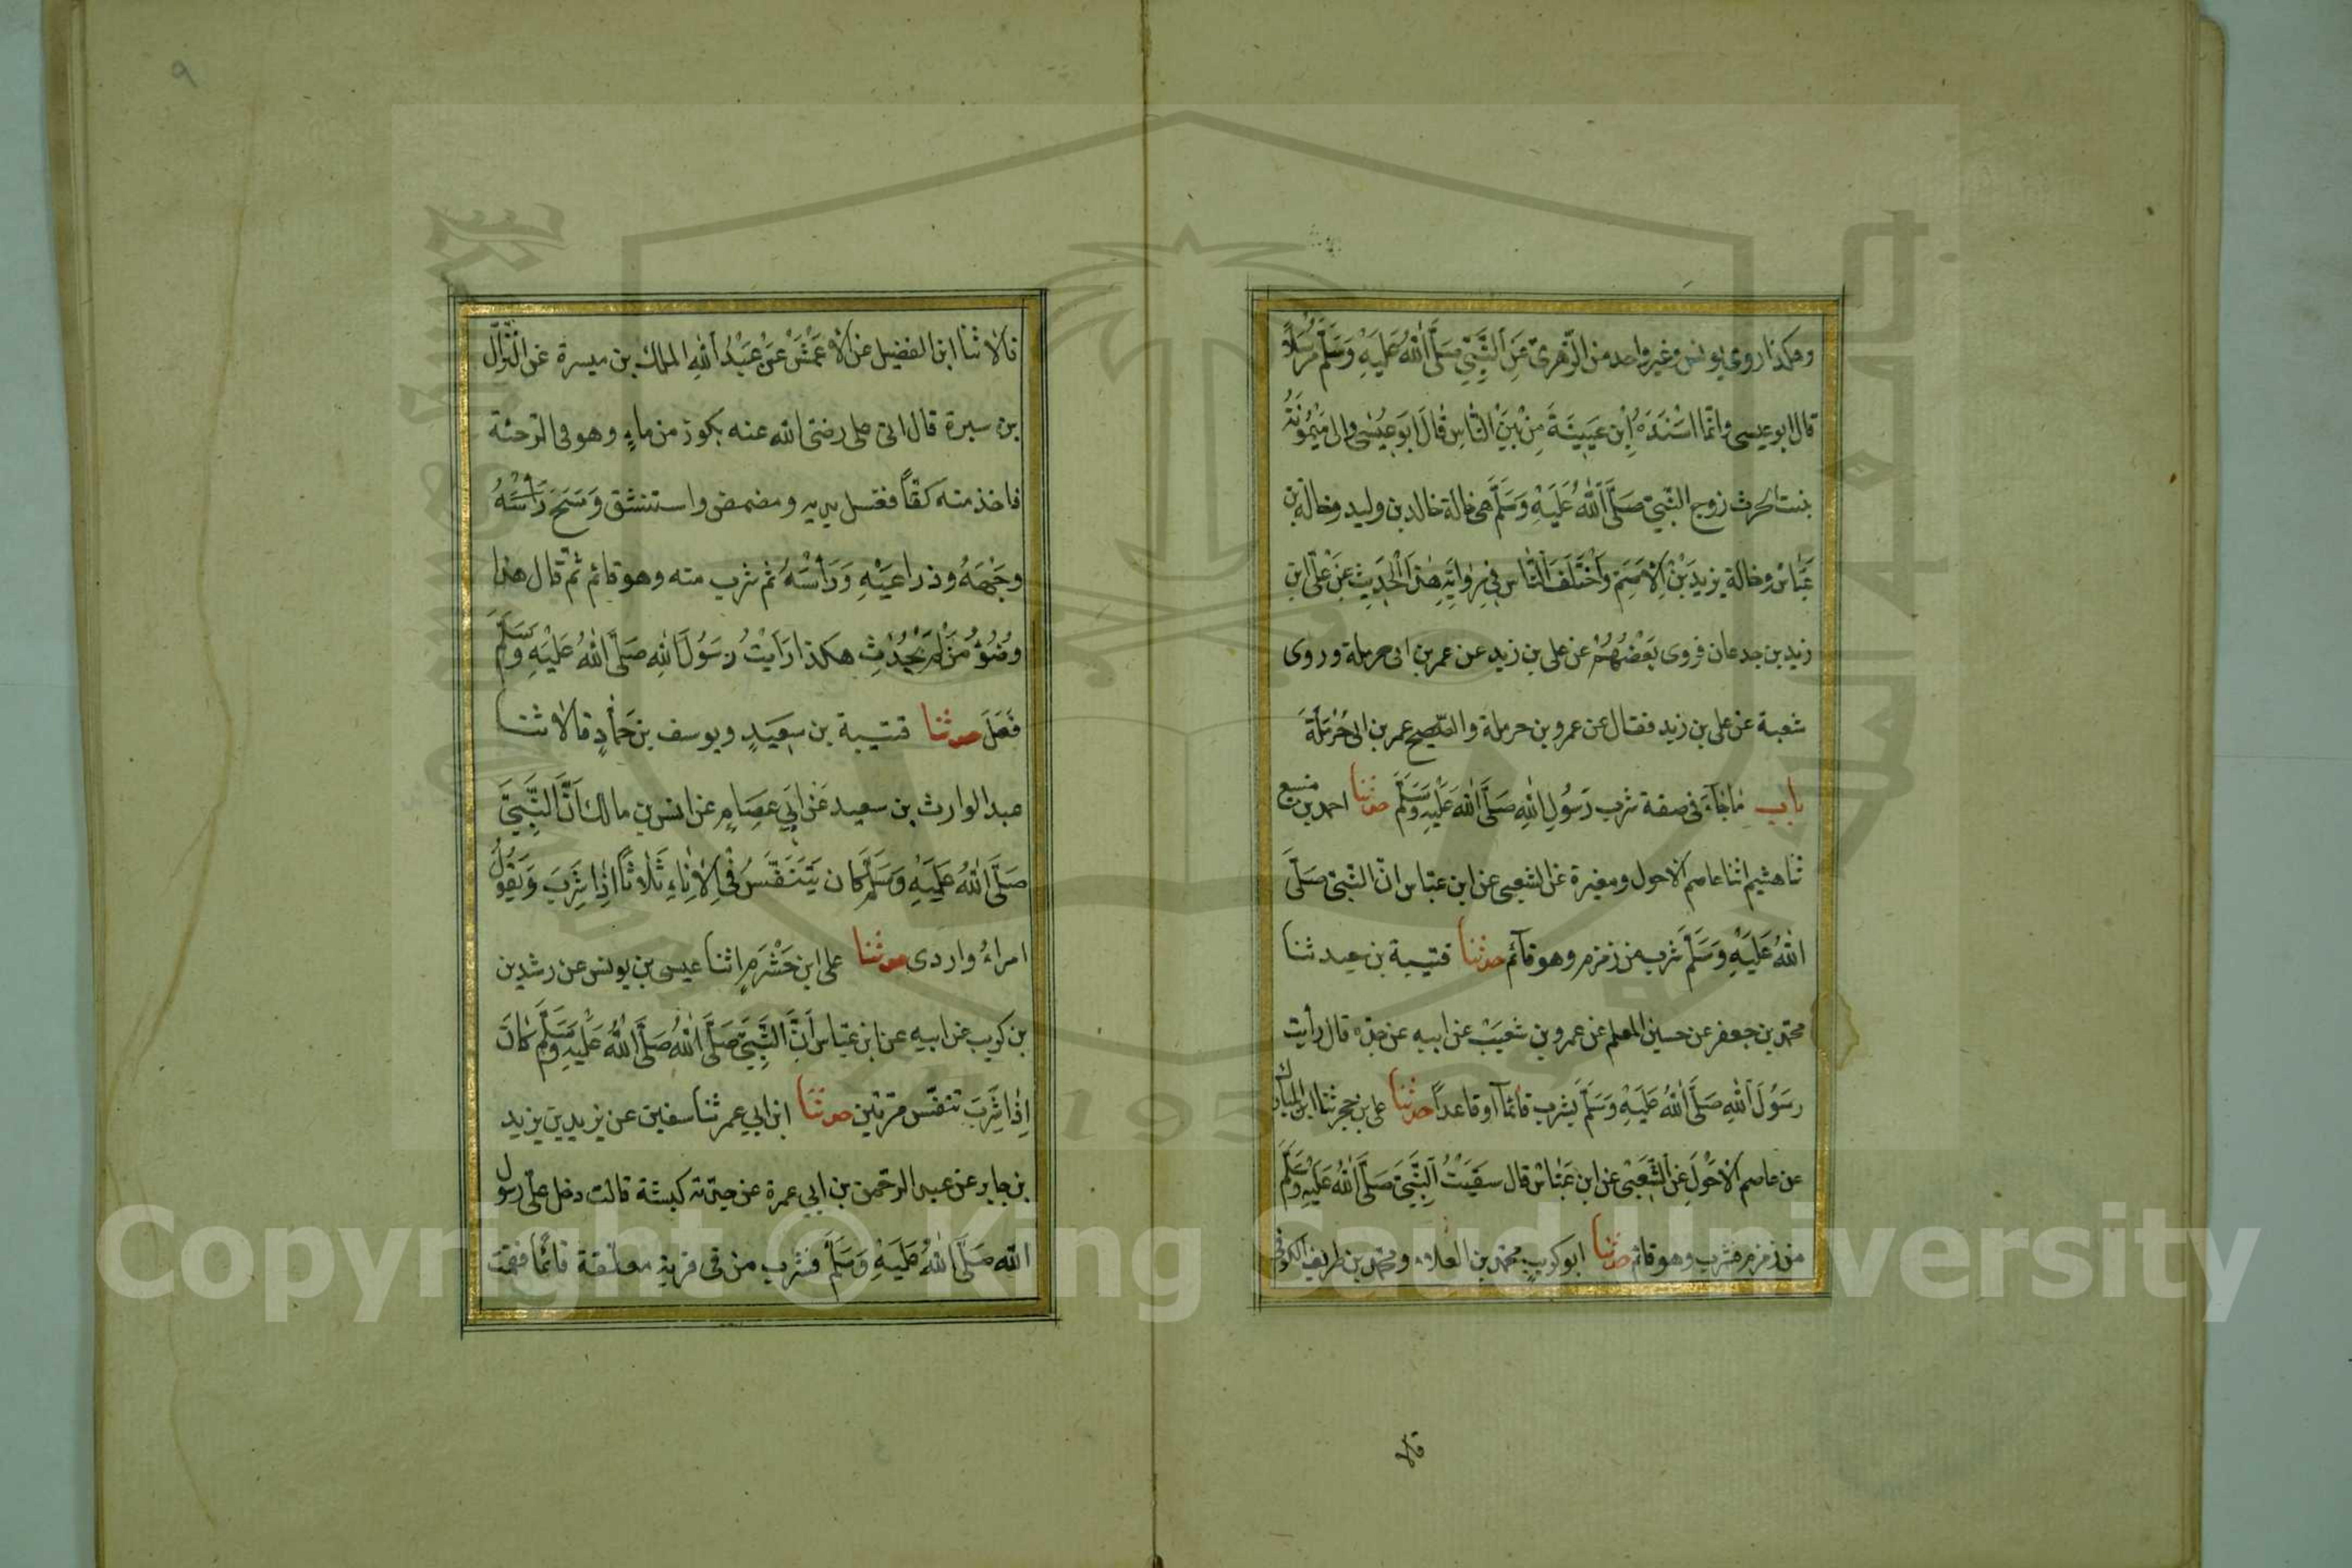 وهكذا روى يونس وغير واحد من الزّهريّ عَنِ النَّبِيِّ صَلَّى اللهُ عَلَيْهِ وَسَلَّمَ مُرْسَلًا
قال ابو عيسى وانّما اسْنَدَهُ اِبْن عُيَيْنَةَ مِنْ بَيْنِ النَّاسِ قَالَ ابَو عِيْسٰى والى مَيْمُوْنَةُ
بنت الحرث زوج النّبيّ صَلَّى اللهُ عَلَيْهِ وَسَلَّمَ هى خالة خالد بن وليد وخالة بن
عَبَّاسْ وخالة يزيدَ بْنِ الْاَصَمِّ وَاخْتَلَفَ النَّاس فِي رِوَايَةِ هٰذَا الْحَدِيْثِ عَنْ عَلّى ابن
زيد بن جدعان فروى بَعْضُهُمْ عن على بن زيد عن عمر بن ابى حرملة وروى
شعبة عن على بن زيد فقال عن عمرو بن حرملة والصّحيح عمر بن ابى حَرْمَلَةَ
باب مَا جَآءَ فى صفة شرب رَسُوْلِ اللهِ صَلَّى اللهُ عَلَيْهِ وَسَلَّمَ حدثنا احمد بن منيع
ثنا هشيم انثا عاصم الاحول ومغيرة عن الشعبى عن ابن عبّاس انّ النّبىّ صَلَّى
اللهُ عَلَيْهِ وَسَلَّمَ شرب من زمزم وهو قآئم حدثنا قتيبة بن سعيد ثنا
محمّد بن جعفر عن حسين المعلم عن عمرو بن شعَيْب عن ابيه عن جدّه قال رأيت
رسَوُلَ اللهِ صَلَّى اللهُ عَلَيْهِ وَسَلَّمَ يشرب قائماً او قاعداً حدثنا على بن حجر ثنا ابن المبارك
عن عاصم الاَحْوَلِ عَنِ الشَّعْبِىْ عن ابن عَبَّاسْ قال سَقَيْتُ النَّبِيَّ صَلَّى اللهُ عَلَيْهِ وَسَلَّمَ
من زمزم فشرب وهو قائم حدثنا ابو كريب محمّد بن العلاء ومحمّد بن طريف الكوفى
قالا
٩
قالا ثنا ابن الفضيل عن الاَعْمَشْ عَنْ عَبْدُ اللهِ الملك بن ميسرة عن النَّزَّال
بن سبرة قال اتى على رضى الله عنه بكوز من ماءٍ وهو فى الرّحبة
فاخذ منه كفّاً فغسل يديه ومضمض واستنشق وَمَسَحَ رَأْسَهُ
وجْهَهُ وذراعَيْهِ وَرَأْسَهُ ثم شرب منه وهو قائم ثمّ قال هذا
وُضُوْءُ مَنْ لَمْ يُحْدِثْ هكذا رَأَيْتُ رَسُوْلَ اللهِ صَلَّى اللهُ عَلَيْهِ وَسَلَّمَ
فَعَلَ حدثنا قتيبة بن سَعِيَدٍ ويوسف بن حَمَّادٍ قالا ثنا
عبد الوارث بن سعيد عَنْ اَبِي عِصَامٍ عن انس بن مالك اَنَّ النَّبِيَّ
صَلَّى اللهُ عَلَيْهِ وَسَلَّمَ كَان يَتَنَفَّسُ فِى الاِنَاءِ ثَلَاثًا اِذَا شَرِبَ وَيَقُوْلُ
امراءُ واردى حدثنا على ابن خَشْرَمٍ انثا عيسى بن يونس عن رشدين
بن كريب عن ابيه عن ابن عبّاس اَنَّ النَّبِيَّ صَلَّى اللهُ صَلَّى اللهُ عَلَيْهِ وَسَلَّمَ كَانَ
اِذَا شَرِبَ تنفّس مرّتين حدثنا ابن ابي عمر ثنا سفين عن يزيد بن يزيد
بن جابر عن عبد الرّحمن بن ابي عمرة عن جدّته كبشة قالت دخل علّى رسول
اللّه صَلَّى اللهُ عَلَيْهِ وَسَلَّمَ فشرب من فى قربة معلّقة قائماً فقمت
Copyright © King Saud University